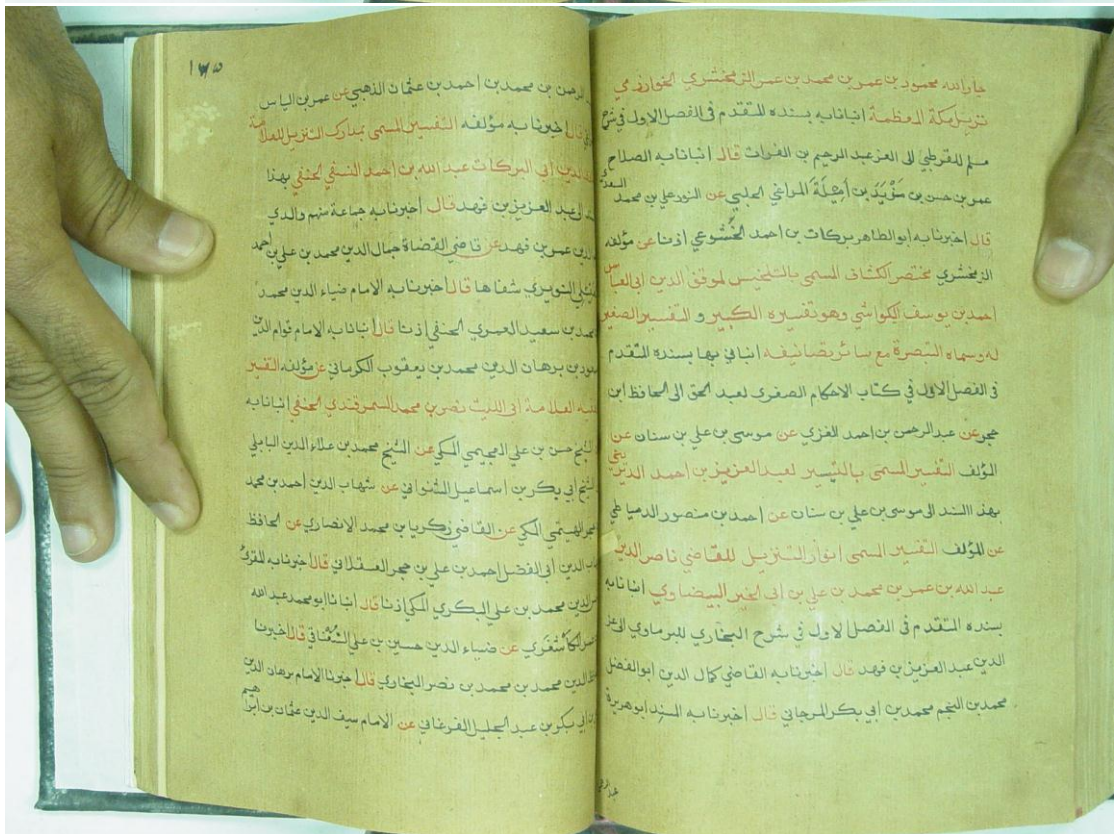 جار الله محمود بن عمر بن محمد بن عمر الزمخشري الخوارزمي
نزيل مكة المعظمة انبانا به بسنده المتقدم في الفصل الاول في شرح
مسلم للقرطبي الى العز عبد الرحيم بن الفرات قال انبانا به الصلاح
عمر بن حسن بن مزيد بن أميلة المراغي الحلبي عن النور علي بن محمد
قال اخبرنا به ابو الطاهر بركات بن احمد الخشوعي اذنا عن مؤلفه
الزمخشري مختصر الكشاف المسمى بالتلخيص لموفق الدين ابي العباس
احمد بن يوسف الكواشي وهو تفسيره الكبير و التفسير الصغير
له وسماه التبصرة مع سائر تصانيفه انباني بها بسنده المتقدم
في الفصل الاول في كتاب الاحكام الصغرى لعبد الحق الى الحافظ ابن
حجر عن عبد الرحمن بن احمد الغزي عن موسى بن علي بن سنان عن
المؤلف التفسير المسمى بالتيسير لعبد العزيز بن احمد الديريني
بهذا السند الى موسى بن علي بن سنان عن احمد بن منصور الدمياطي
عن المؤلف التفسير المسمى انوار التنزيل للقاضي ناصر الدين
عبد الله بن عمر بن محمد بن علي بن ابي الخير البيضاوي انبانا به
بسنده المتقدم في الفصل الاول في شرح البخاري للبرماوي الى عز
الدين عبد العزيز بن فهد قال اخبرنا به القاضي كمال الدين ابو الفضل
محمد بن النجم محمد بن ابي بكر المرجاني قال اخبرنا به المسند ابو هريرة
١٧٥
الرحمن بن محمد بن احمد بن عثمان الذهبي عن عمر بن الياس
قال اخبرنا به مؤلفه التفسير المسمى بمدارك التنزيل للعلامة
الدين ابي البركات عبد الله بن احمد النسفي الحنفي بهذا
الى عبد العزيز بن فهد قال أخبرنا به جماعة منهم والدي
الدين عمر بن فهد عن قاضي القضاة جمال الدين محمد بن علي بن احمد
النويري شفاها قال اخبرنا به الامام ضياء الدين محمد
محمد بن سعيد العمري الحنفي إذنا قال انبانا به الامام قوام الدين
مسعود بن برهان الدين محمد بن يعقوب الكرماني عن مؤلفه التفسير
الفقيه العلامة ابي الليث نصر بن محمد السمرقندي الحنفي انبانا به
الشيخ حسن بن علي العجيمي المكي عن الشيخ محمد بن علاء الدين البابلي
الشيخ ابي بكر بن اسماعيل الشنواني عن شهاب الدين احمد بن محمد
حجر الهيتمي المكي عن القاضي زكريا بن محمد الانصاري عن الحافظ
شهاب الدين أبي الفضل احمد بن علي بن حجر العسقلاني قال اخبرنا به المقرئ
الدين محمد بن علي البكري المكي اذنا قال انبانا ابو محمد عبد الله
الكاشغري عن ضياء الدين حسين بن علي السُّغْناقي قال اخبرنا
الدين محمد بن محمد بن نصر البخاري قال اخبرنا الامام برهان الدين
ابي بكر بن عبد الجليل الفرغاني عن الامام سيف الدين عثمان بن ابراهيم